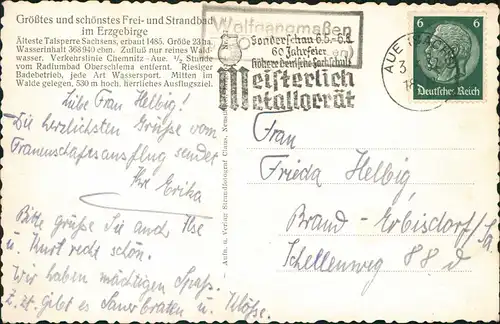 Größtes und schönstes Frei- und Strandbad
im Erzgebirge
Älteste Talsperre Sachsens, erbaut 1485. Größe 23 ha.
Wasserinhalt 368 940 cbm. Zufluß nur reines Wald-
wasser. Verkehrslinie Chemnitz - Aue. ½ Stunde
vom Radiumbad Oberschlema entfernt. Riesiger
Badebetrieb, jede Art Wassersport. Mitten im
Walde gelegen, 530 m hoch, herrliches Ausflugsziel.
Wolfgangmaßen
Sonderschau
60 Jahrfeier
Höhere Deutsche Fachschule
Meisterlich
Metallgerät
AUE
6 6
Deutsches Reich
Liebe Frau Helbig!
Die herzlichsten Grüße vom
Frauenschaftsausflug sendet
Ihr Erika
Bitte grüße Sie auch Ilse
u. Kurt recht schön.
Wir haben mächtigen Spaß.
z. zt. gibt es Sauerbraten u. Klöße.
Aufn. u. Verlag
Frau
Frieda Helbig
Brand-Erbisdorf/Sa
Schellenweg 88 d